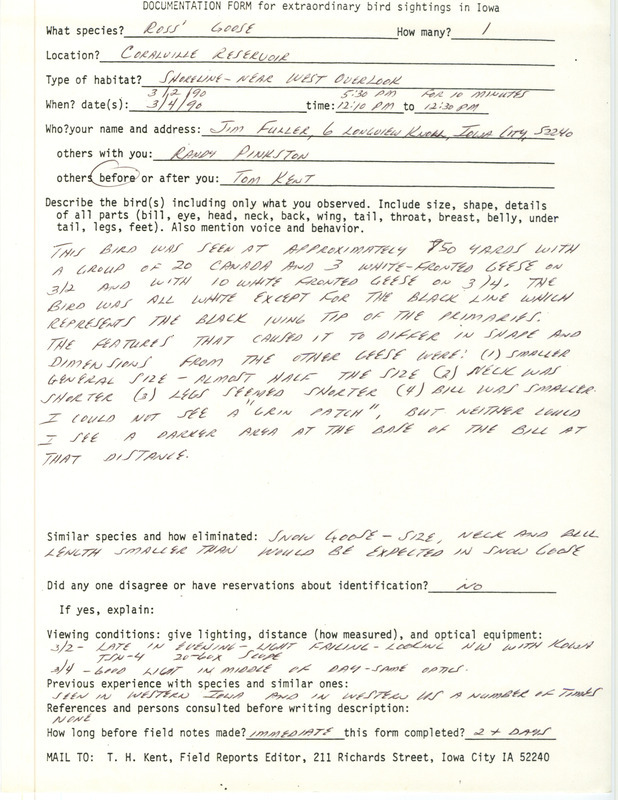 DOCUMENTATION FORM for extraordinary bird sightings in Iowa
What species? ROSS' GOOSE How many? 1
Location? CORALVILLE RESERVOIR
Type of habitat? SHORELINE - NEAR WEST OVERLOOK
3/2/90 5:30 PM FOR 10 MINUTES
When? date(s): 3/4/90 time: 12:10 PM to 12:30 PM
Who?your name and address: JIM FULLER, 6 LONGVIEW KNOLL, IOWA CITY, 52240
others with you: RANDY PINKSTON
others before or after you: TOM KENT
Describe the bird(s) including only what you observed. Include size, shape, details
of all parts (bill, eye, head, neck, back, wing, tail, throat, breast, belly, under
tail, legs, feet). Also mention voice and behavior.
THIS BIRD WAS SEEN AT APPROXIMATELY 50 YARDS WITH
A GROUP OF 20 CANADA AND 3 WHITE-FRONTED GEESE ON
3/2 AND WITH 10 WHITE FRONTED GEESE ON 3/4. THE
BIRD WAS ALL WHITE EXCEPT FOR THE BLACK LINE WHICH
REPRESENTS THE BLACK WING TIP OF THE PRIMARIES.
THE FEATURES THAT CAUSED IT TO DIFFER IN SHAPE AND
DIMENSIONS FROM THE OTHER GEESE WERE: (1) SMALLER
GENERAL SIZE - ALMOST HALF THE SIZE (2) NECK WAS
SHORTER (3) LEGS SEEMED SHORTER (4) BILL WAS SMALLER.
I COULD NOT SEE A "GRIN PATCH", BUT NEITHER COULD
I SEE A DARKER AREA AT THE BASE OF THE BILL AT
THAT DISTANCE.
Similar species and how eliminated: SNOW GOOSE - SIZE, NECK AND BILL
LENGTH SMALLER THAN WOULD BE EXPECTED IN SNOW GOOSE
Did any one disagree or have reservations about identification? NO
If yes, explain:
Viewing conditions: give lighting, distance (how measured), and optical equipment:
3/2 - LATE IN EVENING - LIGHT FAILING - LOOKING NW WITH KOWA
TSN-4 20-60X SCOPE
3/4 - GOOD LIGHT IN MIDDLE OF DAY - SAME OPTICS.
Previous experience with species and similar ones:
SEEN IN WESTERN IOWA AND IN WESTERN US A NUMBER OF TIMES
References and persons consulted before writing description:
NONE
How long before field notes made? IMMEDIATE this form completed? 2 + DAYS
MAIL TO: T. H. Kent, Field Reports Editor, 211 Richards Street, Iowa City IA 52240